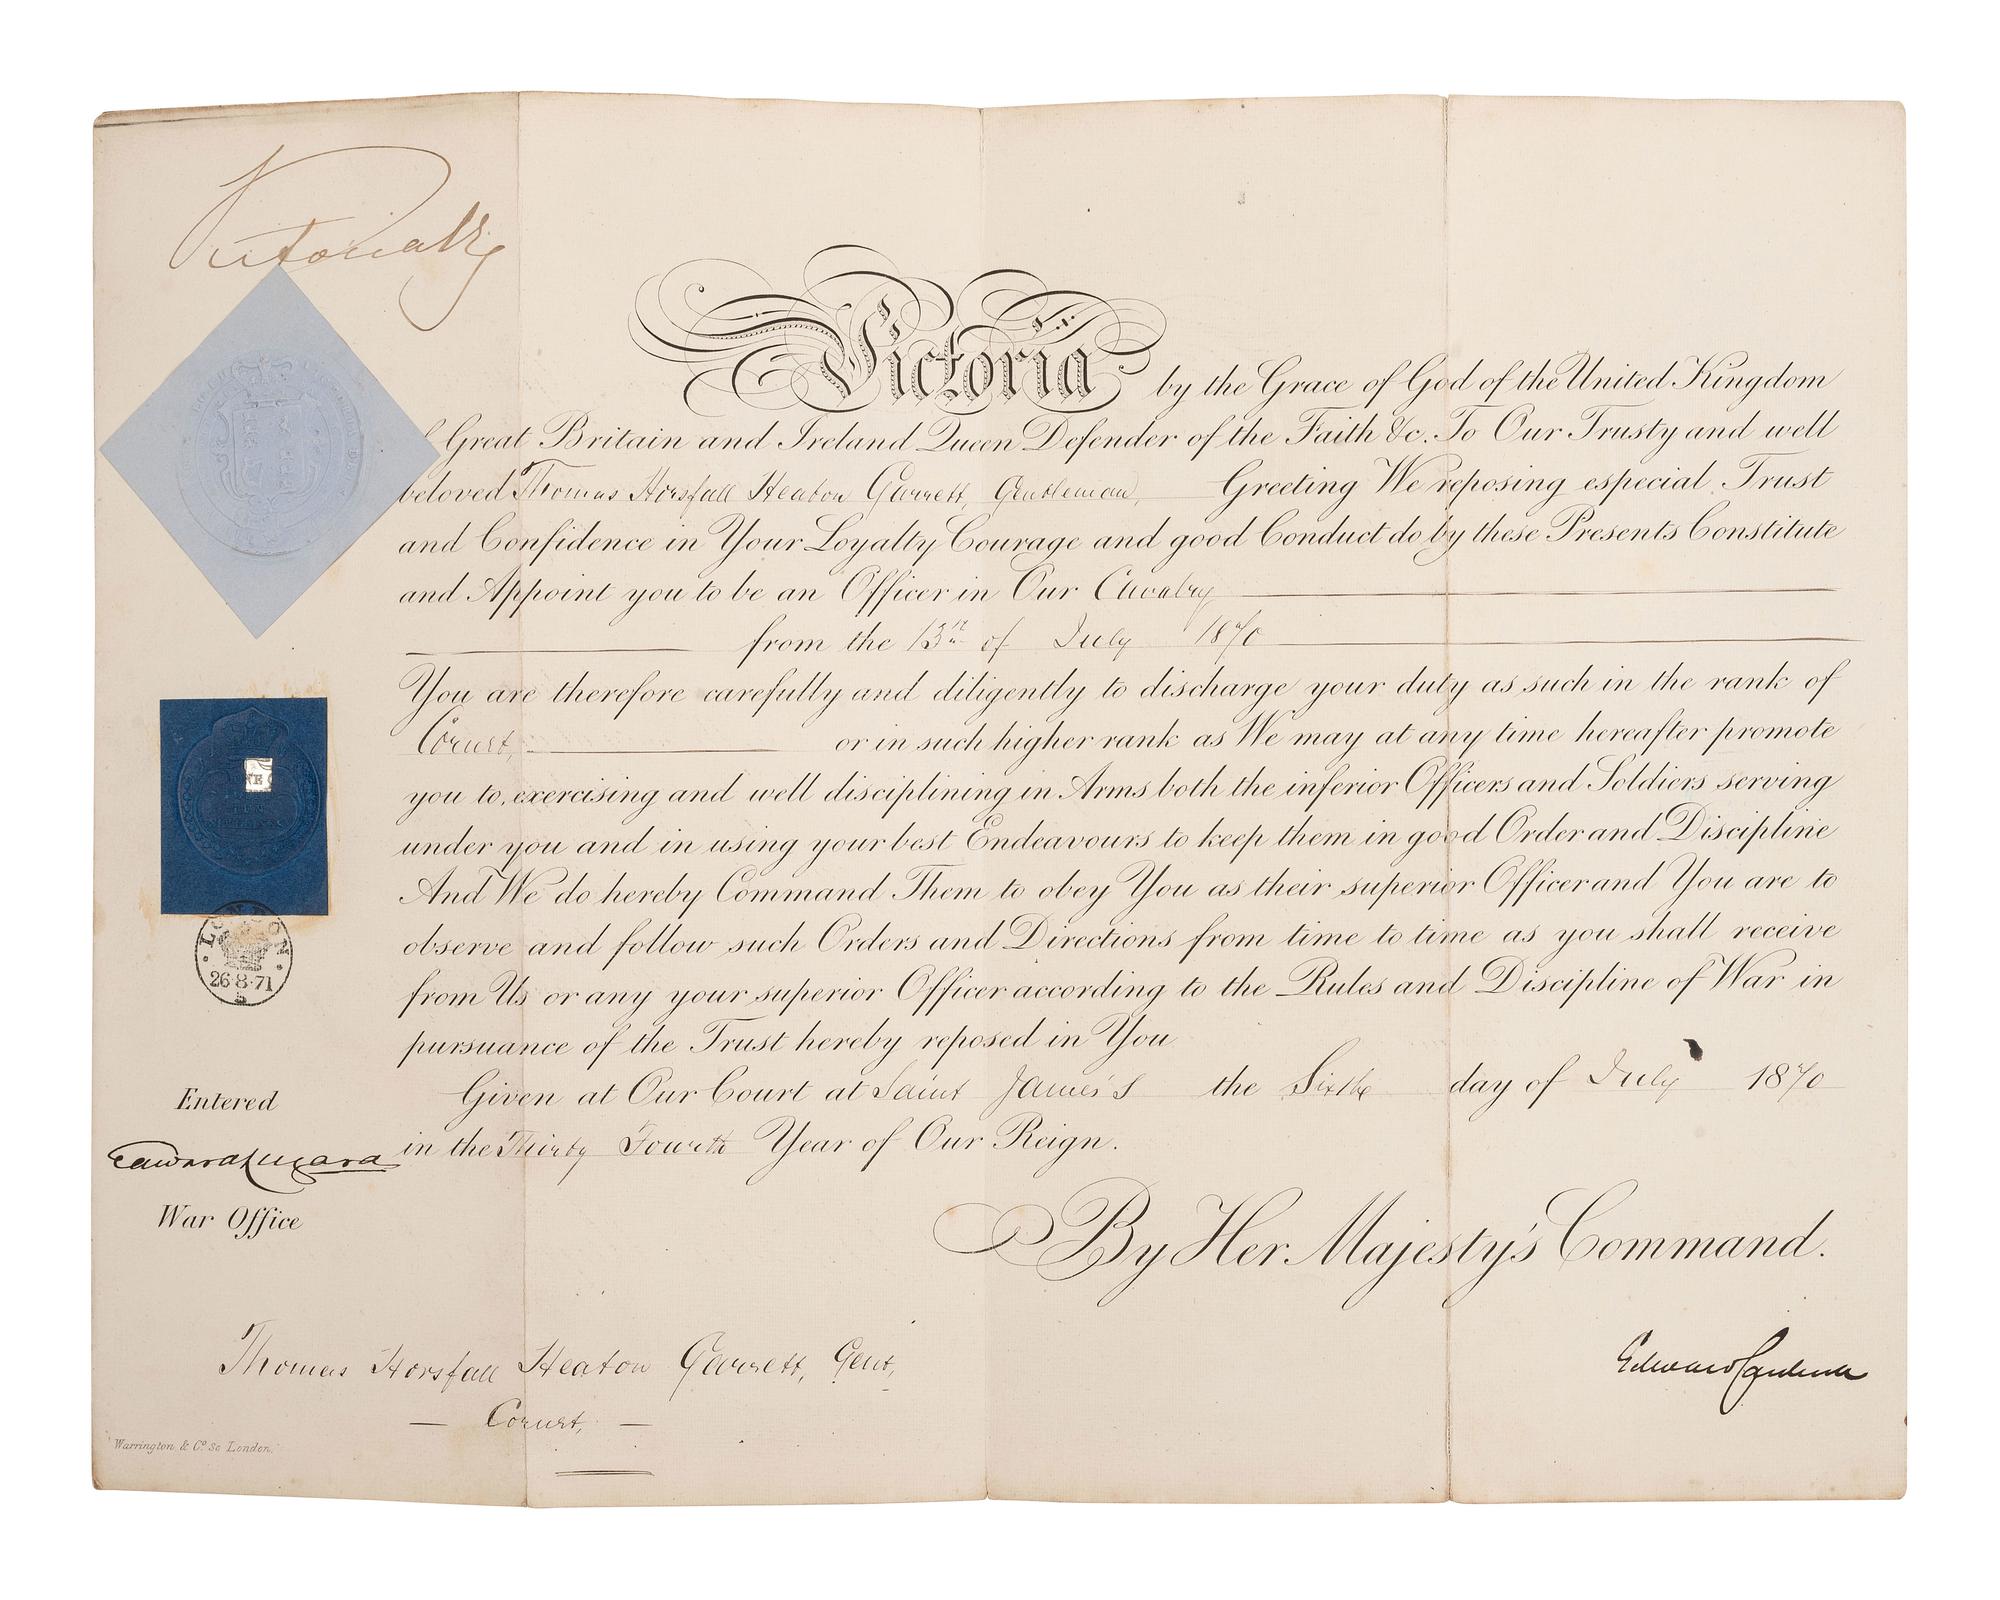 Victoria R
Victoria by the Grace of God of the United Kingdom
of Great Britain and Ireland Queen Defender of the Faith &c. To Our Trusty and well
beloved Thomas Horsfall Heaton Garrett, Gentleman, Greeting We reposing especial Trust
and Confidence in Your Loyalty Courage and good Conduct do by these Presents Constitute
and Appoint you to be an Officer in Our Cavalry
from the 13th of July 1870
You are therefore carefully and diligently to discharge your duty as such in the rank of
Cornet, or in such higher rank as We may at any time hereafter promote
you to, exercising and well disciplining in Arms both the inferior Officers and Soldiers serving
under you and in using your best Endeavours to keep them in good Order and Discipline
And We do hereby Command Them to obey You as their superior Officer and You are to
observe and follow such Orders and Directions from time to time as you shall receive
from Us or any your superior Officer according to the Rules and Discipline of War in
pursuance of the Trust hereby reposed in You
Given at Our Court at Saint James's the Sixth day of July 1870
in the Thirty Fourth Year of Our Reign.
By Her Majesty's Command.
Edward Cardwell
LONDON
26·8·71
Entered
Edward Lugard
War Office
Thomas Horsfall Heaton Garrett, Gent,
— Cornet, —
Warrington & Co. Sc London.